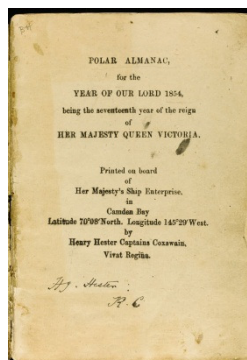 POLAR ALMANAC,
for the
YEAR OF OUR LORD 1854,
being the seventeenth year of the reign
of
HER MAJESTY QUEEN VICTORIA.
Printed on board
of
Her Majesty's Ship Enterprise.
in
Camden Bay
Latitude 70°08' North. Longitude 145°29' West.
by
Henry Hester Captains Coxswain.
Vivat Regina.
Hy. Hester